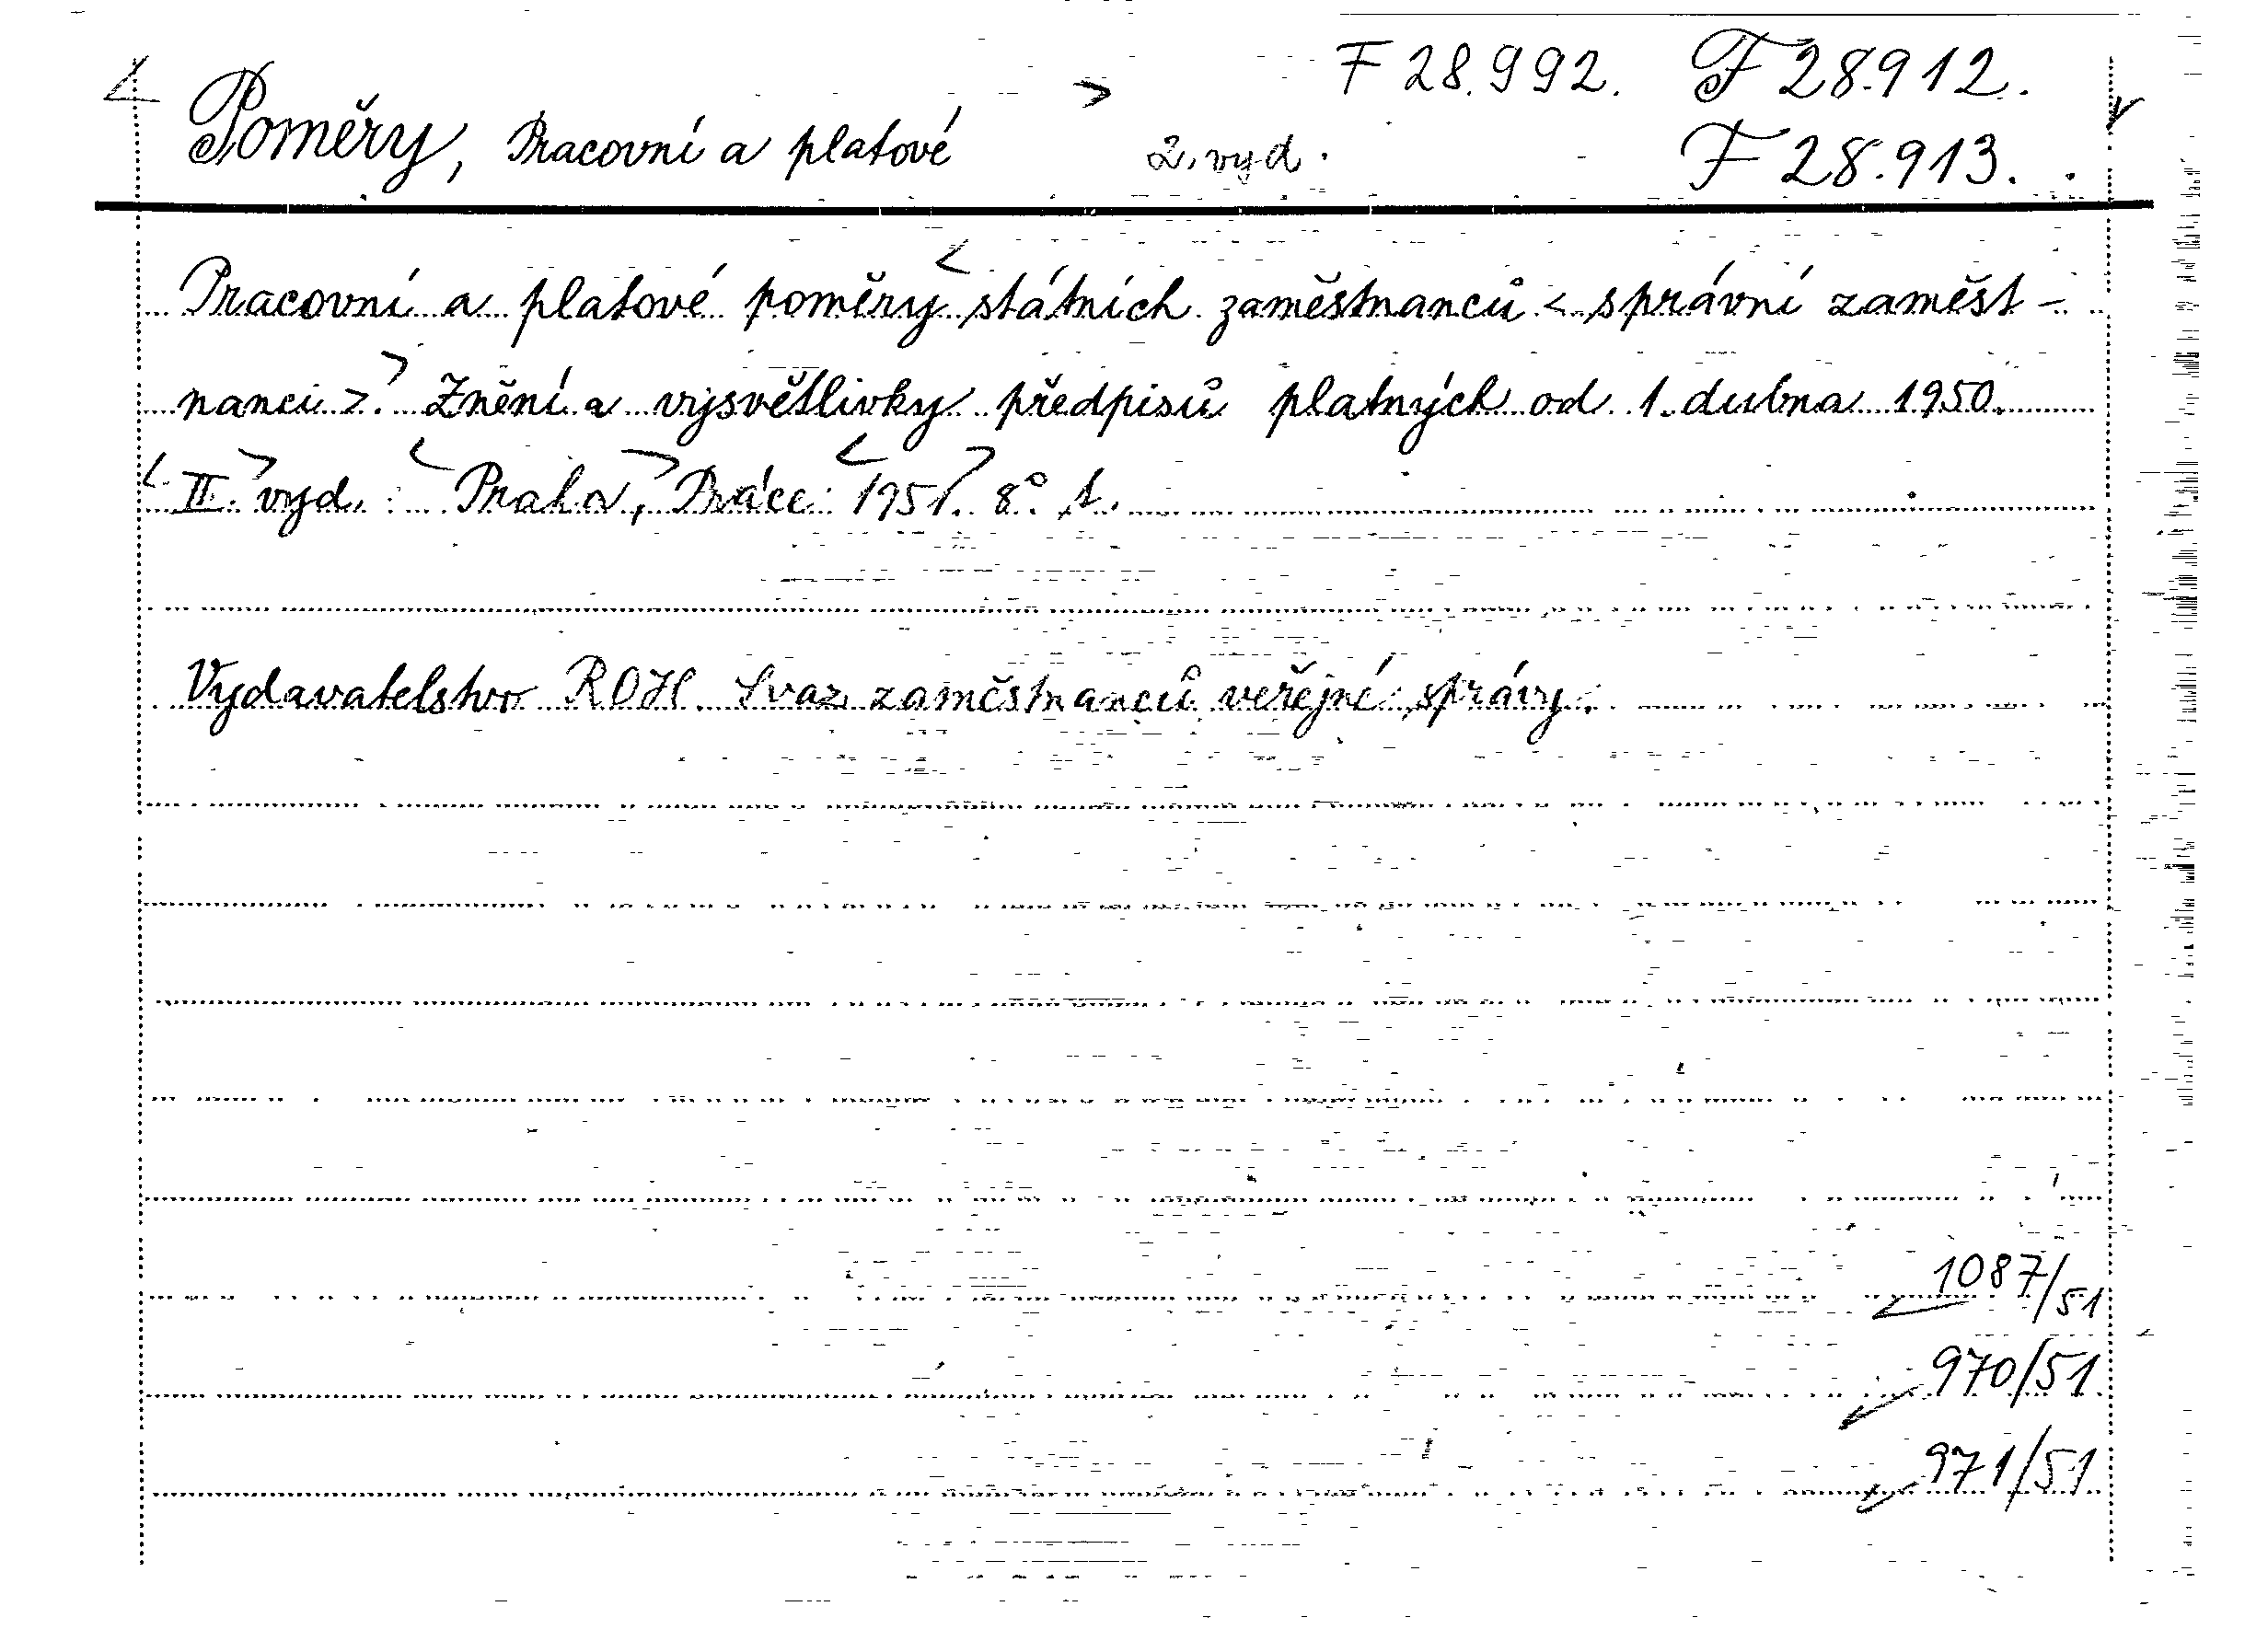 F 28.992. F 28.912.
Poměry, Pracovní a platové 2. vyd. F 28.913.
Pracovní a platové poměry státních zaměstnanců < správní zaměst-
nanci >. Znění a vysvětlivky předpisů platných od 1. dubna 1950.
II. vyd. Praha, Práce 1951. 8° s.
Vydavatelstvo ROH. Svaz zaměstnanců veřejné správy.
1087/51
970/51
971/51